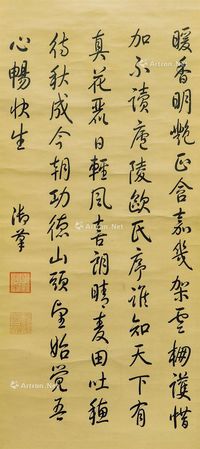 暖香明艷正含嘉幾架雲棚護惜
加不讀廬陵歐氏序誰知天下有
真花麗日輕風喜朗晴麦田吐穗
待秋成今朝功德山頭望始覺吾
心暢快生
御筆
Artron.Net